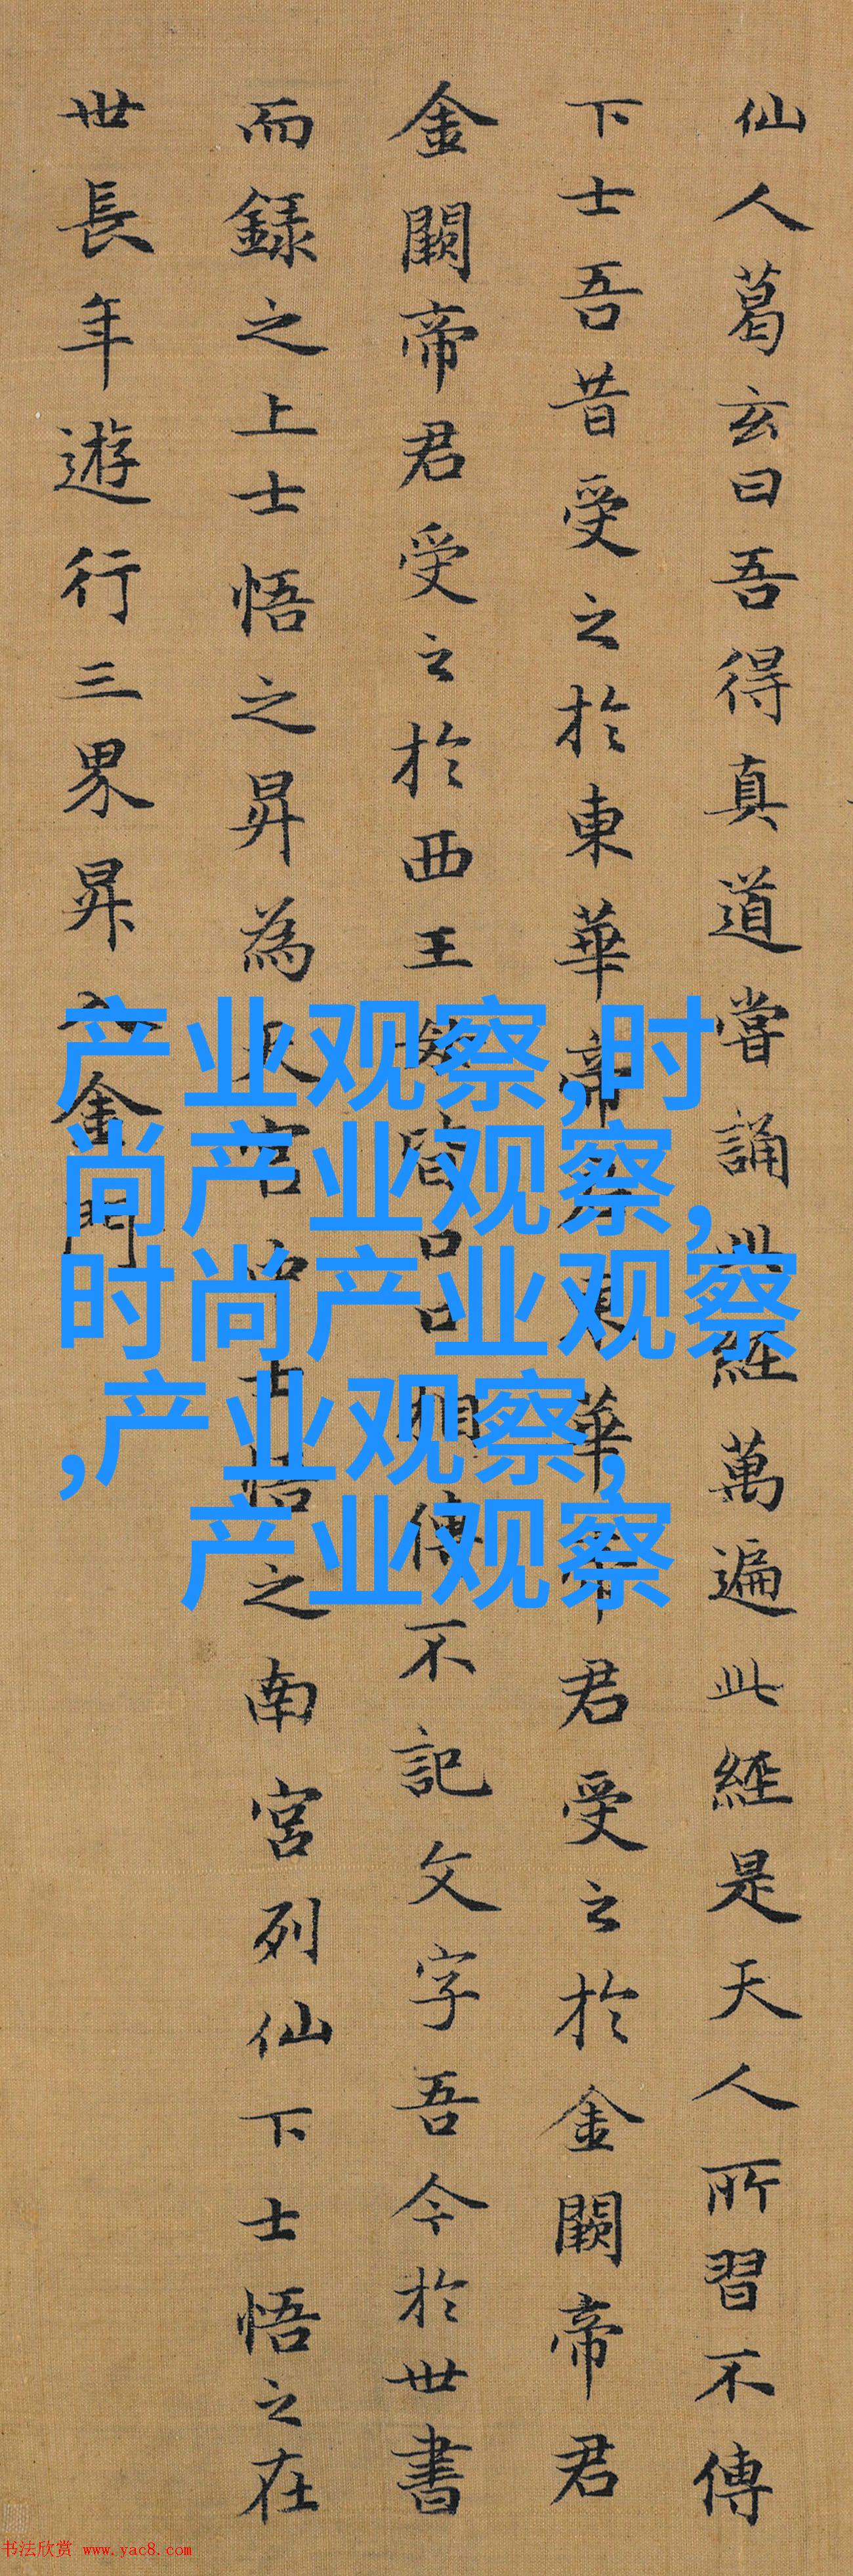 仙人葛玄曰吾得真道嘗誦此經萬遍此經是天人所習不傳
下士吾昔受之於東華帝君東華帝君受之於金闕帝君
金闕帝君受之於西王母皆口口相傳不記文字吾今於世書
而録之上士悟之昇為天官中士悟之南宮列仙下士悟之在
世長年遊行三界昇入金門
产业观察,时
尚产业观察,
时尚产业观察
,产业观察,
产业观察
书法欣赏 www.yac8.com